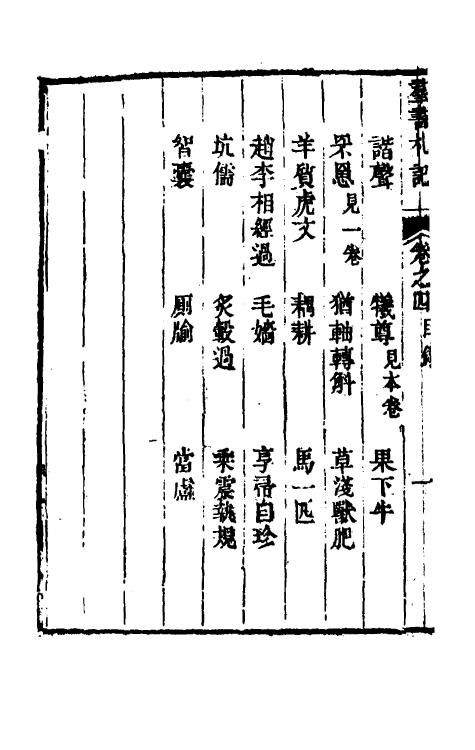 羣書札記 卷之四目錄 一
諧聲 犧尊見本卷 果下牛
罘罳見一卷 猶軸轉斛 草淺獸肥
羊質虎文 耦耕 馬一匹
趙李相經過 毛嬙 享帚自珍
坑儒 炙轂過 乘震執規
智囊 厠牏 當盧